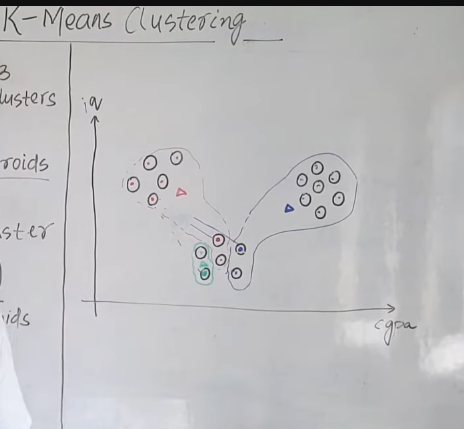 K-Means Clustering
3
lusters
roids
ster
ids
iq
cgpa